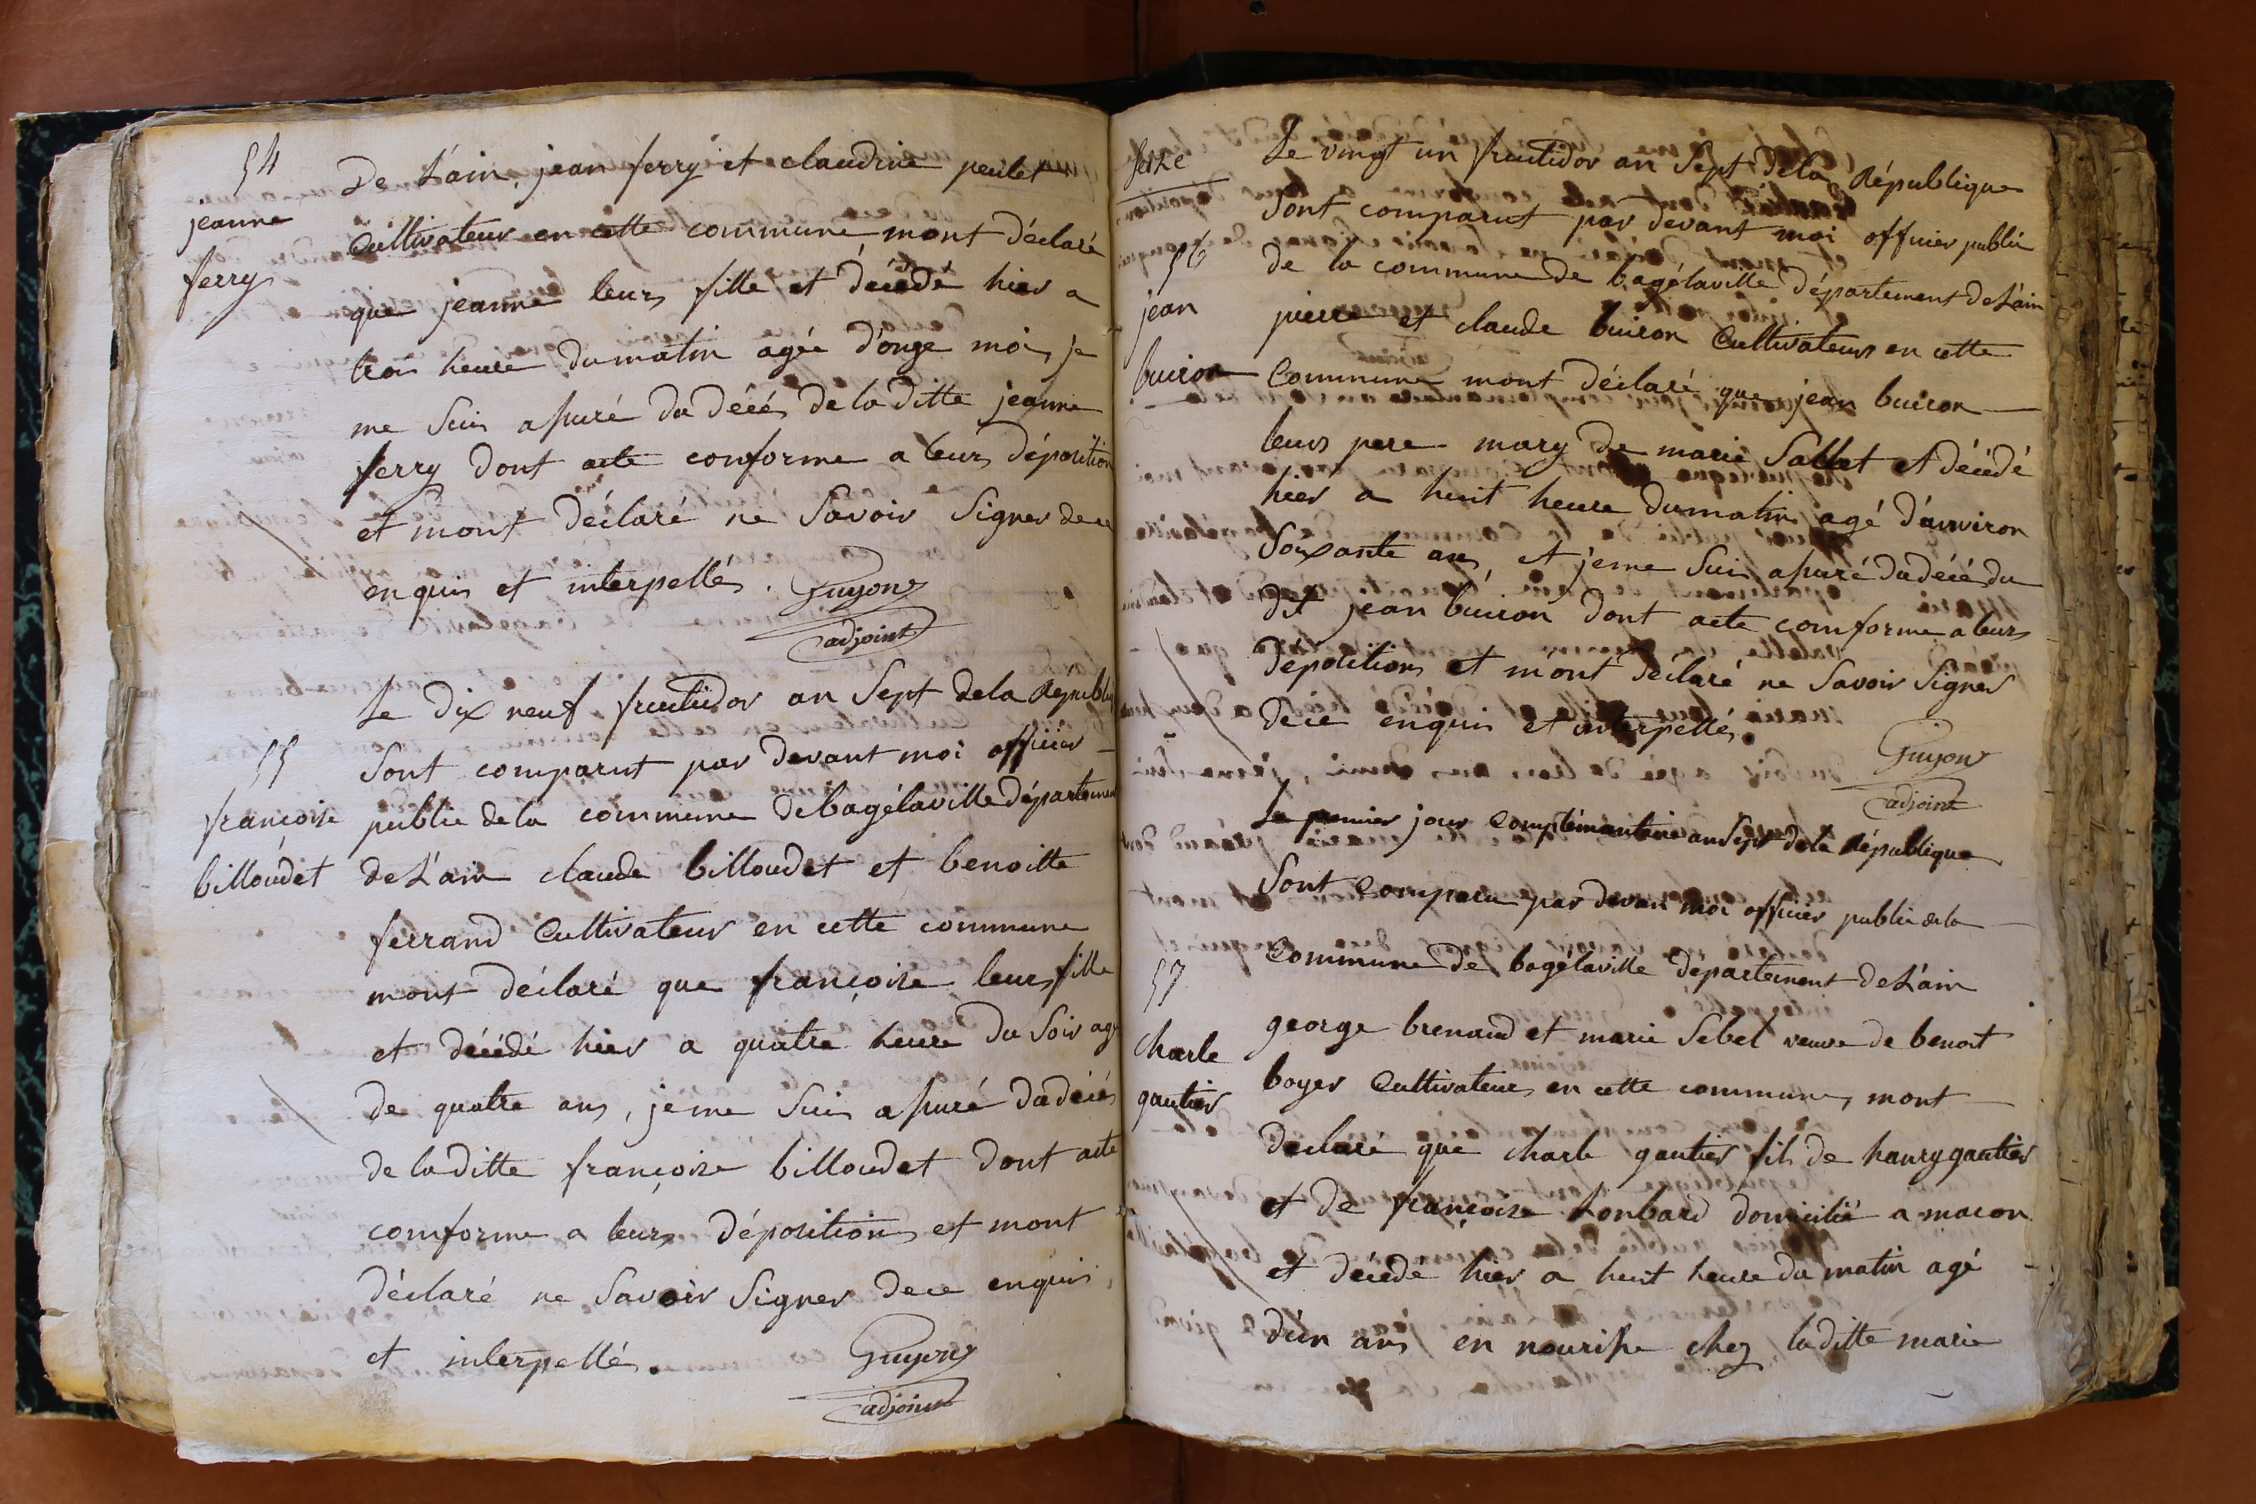 54
jeanne
ferry
De L'ain, jean ferry et claudine peulet
Cultivateur en cette commune mont déclaré
que jeanne leurs fille et décédé hier a
trois heure du matin agée d'onze mois, je
me suis assuré du décés de la ditte jeanne
ferry dont acte conforme a leurs déposition
et mont déclaré ne Savoir Signer de ce
enquis et interpellés. Guyon
adjoint
55
françoise
billoudet
Le dix neuf fructidor an Sept de la Républi
Sont comparut par devant moi officier
public de la commune de bagélaville départemen
de L'ain claude billoudet et benoitte
ferrand Cultivateur en cette commune
mont déclaré que françoise leurs fille
et décédé hier a quatre heure du Soir agé
de quatre ans, je me suis assuré du décés
de la ditte françoise billoudet dont acte
comforme a leurs déposition et mont
déclaré ne Savoir Signer de ce enquis
et interpellé. Guyon
adjoint
seize
56
jean
buiron
Le vingt un fructidor an Sept de la République
Sont comparut par devant moi officier public
de la commune de bagélaville département de L'ain
pierre et claude buiron Cultivateurs en cette
Commune mont déclaré que jean buiron
leurs pere mary de marie Sallet et décédé
hier a huit heure du matin agé d'anviron
Soixante ans, et je me suis assuré du décé du
dit jean buiron dont acte comforme a leurs
déposition et m'ont déclaré ne Savoir Signer
de ce enquis et interpellé.
Guyon
adjoint
57
charle
gautier
Le premier jour complémantaire an Sept de la République
Sont Comparu par devan moi officier public de la
Commune de bagélaville département de L'ain
george brenaud et marie Sebel veuve de benoit
boyer Cultivateur en cette commune, mont
declaré que charle gautier fils de hanry gautier
et de françoise Lonbard domicilié a macon
et décédé hier a huit heure du matin agé
d'un ans en nourisse chez la ditte marie